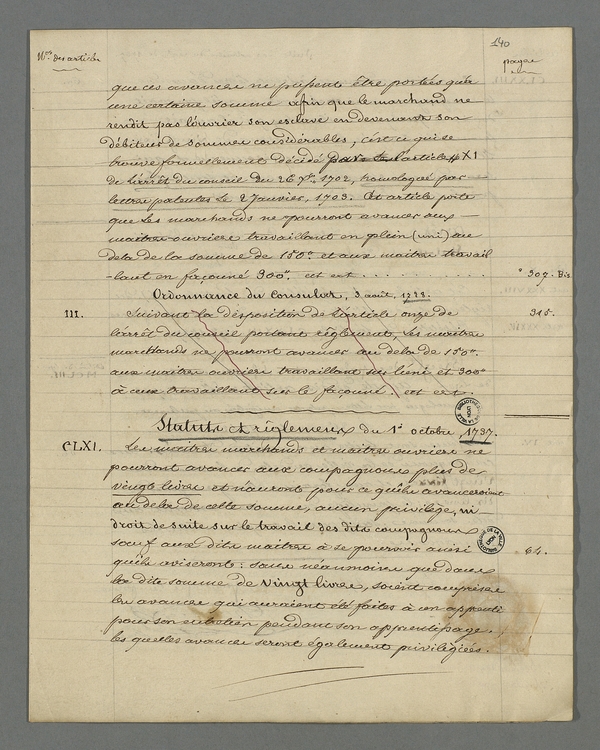 140
Nos. des articles
pages
que ces avances ne puissent être portées qu'à
une certaine somme afin que le marchand ne
rendit pas l'ouvrier son esclave en devenant son
débiteur de sommes considérables, c'est ce qui se
trouve formellement décidé par l'article XI
de l'arrêt du conseil du 26 7bre. 1702, homologué par
lettres patentes le 2 Janvier, 1703. Cet article porte
que les marchands ne pourront avancer aux
maitres ouvriers travaillant en plein (uni) au
dela de la somme de 150# et aux maitres travail
-lant en façonné 300#. cet ext . . . . . . . . . 307. Bis
Ordonnance du Consulat, 3 août, 1728.
III. Suivant la disposition de l'article onze de 315.
l'arrêt du conseil portant règlement, les maitres
marchands ne pourront avancer au dela de 150#.
aux maitres ouvriers travaillant sur l'uni et 300#
à ceux travaillant sur le façonné. cet ext.
Statuts et réglemens du 1er octobre, 1737.
CLXI. Les maitres marchands et maitres ouvriers ne
pourront avancer aux compagnons plus de
vingt livres et n'auront pour ce qu'ils avanceroient
au dela de cette somme, aucun privilège, ni
droit de suite sur le travail des dits compagnons
sauf aux dits maitres à se pourvoir ainsi 64.
qu'ils aviseront: sans néanmoins que dans
la dite somme de vingt livres, soient comprises
les avances qui auraient été faites à un apprenti
pour son entretien pendant son apprentissage,
les quelles avances seront également privilégiées.